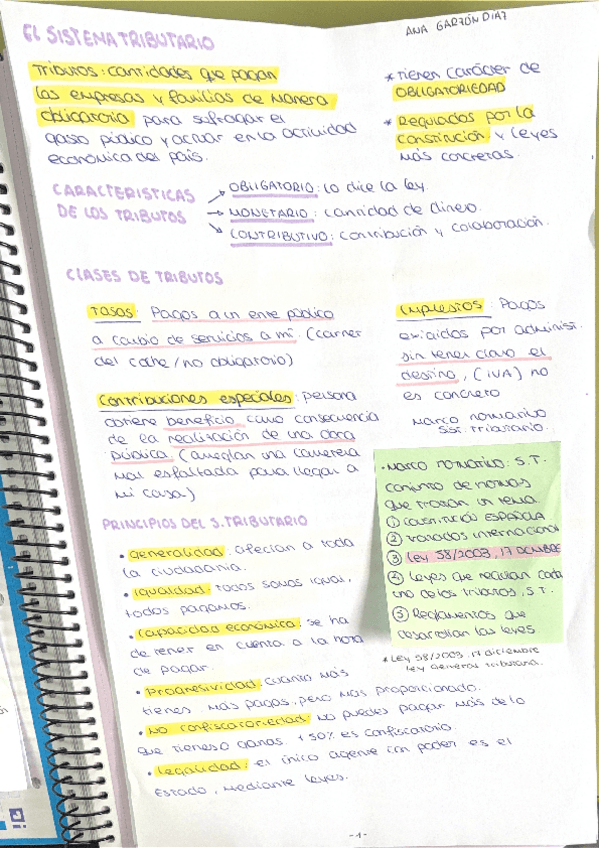 EL SISTEMA TRIBUTARIO
ANA GARZÓN DIAZ
Tributos: cantidades que pagan
las empresas y familias de manera
obligatoria para sufragar el
gasto público y actuar en la actividad
económica del país.
* Tienen carácter de
OBLIGATORIEDAD
* Regulados por la
constitución y leyes
más concretas.
CARACTERISTICAS
DE LOS TRIBUTOS
→ OBLIGATORIO: Lo dice la ley.
→ MONETARIO: cantidad de dinero.
→ CONTRIBUTIVO: contribución y colaboración.
CLASES DE TRIBUTOS
Tasas: Pagos a un ente público
a cambio de servicios a mi. (carnet
del coche / no obligatorio)
Contribuciones especiales: persona
obtiene beneficio como consecuencia
de la realización de una obra
pública. (arreglan una carretera
mal asfaltada para llegar a
mi casa)
Impuestos: Pagos
exigidos por administ.
sin tener claro el
destino, (IVA) no
es concreto
Marco normativo
sist. tributario.
• Marco normativo: S.T.
conjunto de normas
que tratan un tema
① CONSTITUCIÓN ESPAÑOLA
② Tratados internacional
③ Ley 58/2003, 17 DICIEMBRE
④ Leyes que regulan cada
uno de los tributos, S.T.
⑤ Reglamentos que
desarrollan las leyes
* Ley 58/2003, 17 diciembre
Ley General tributaria.
PRINCIPIOS DEL S.TRIBUTARIO
• generalidad: afectan a toda
la ciudadania.
• igualdad: todos somos igual,
todos pagamos.
• capacidad económica: se ha
de tener en cuenta a la hora
de pagar.
• Progresividad: cuanto más
tienes, más pagas, pero más proporcionado.
• No confiscatoriedad: No puedes pagar más de lo
que tienes o ganas. +50% es confiscatorio.
• Legalidad: el único agente con poder es el
Estado, mediante leyes.
-1-